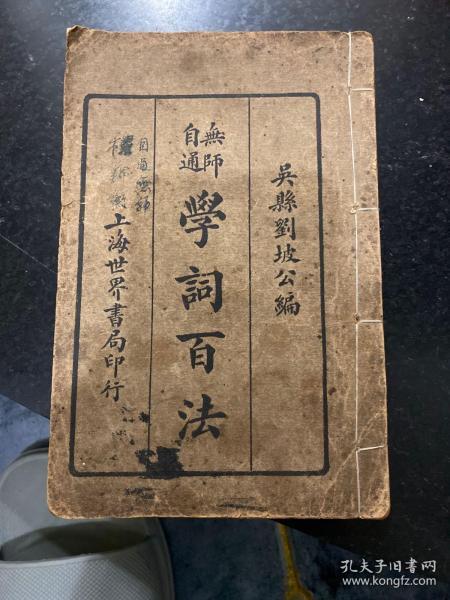 吳縣劉坡公編
無師自通
學詞百法
上海世界書局印行
自通無師
孔夫子旧书网
www.kongfz.com